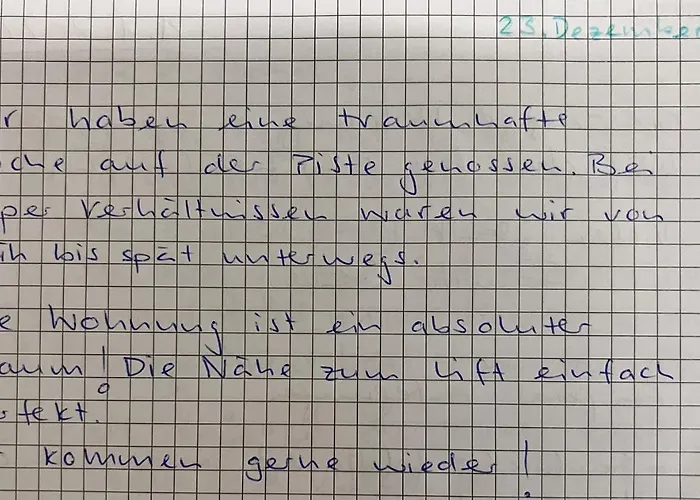 23. Dezember
r haben eine traumhafte
che auf der Piste genossen. Bei
per Verhältnissen waren wir von
üh bis spät unterwegs.
e Wohnung ist ein absoluter
aum! Die Nähe zum Lift einfach
rfekt.
r kommen gerne wieder!